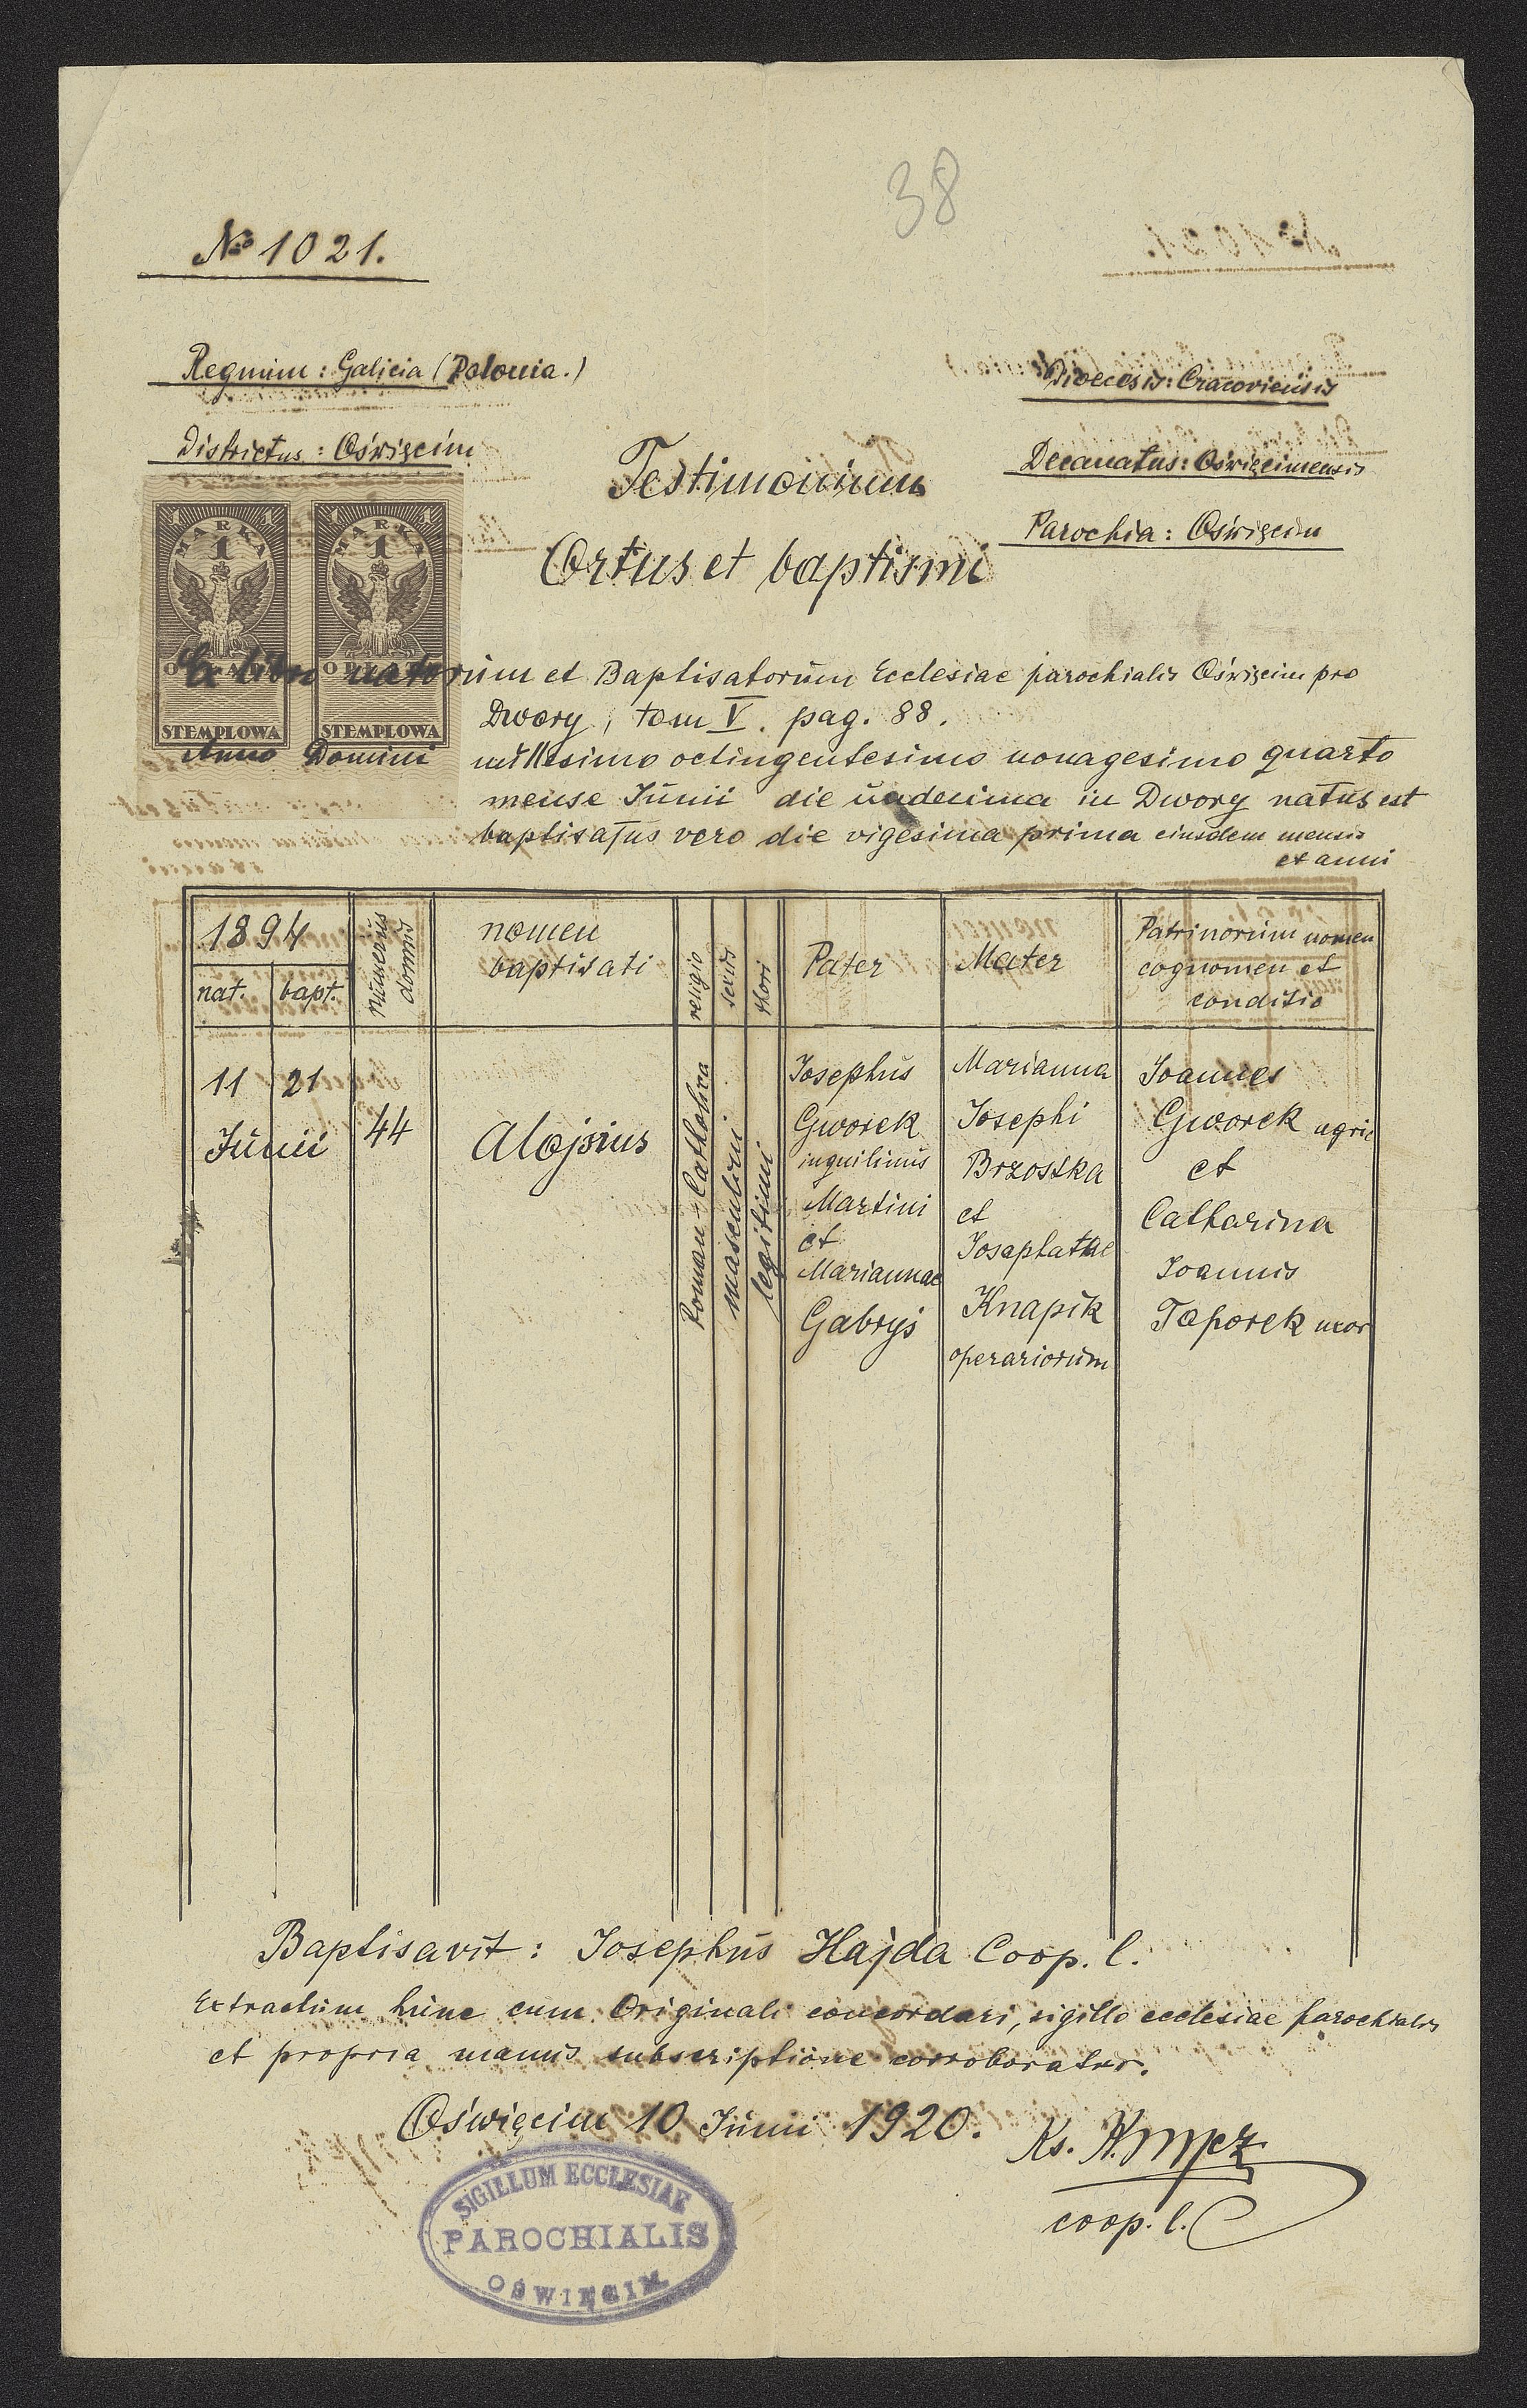 38
№ 1021.
Regnum: Galicia (Polonia.)
Districtus: Oświęcim
Dioecesis: Cracoviensis
Decanatus: Oświęcimensis
Parochia: Oświęcim
Testimonium
Ortus et baptismi
1 1 1 1
MARKA MARKA
1 1
OPŁATA OPŁATA
STEMPLOWA STEMPLOWA
Ex libro natorum et Baptisatorum Ecclesiae parochialis Oświęcim pro
Dwory, tom V. pag. 88.
Anno Domini millesimo octingentesimo nonagesimo quarto
mense Junii die undecima in Dwory natus est
baptisatus vero die vigesima prima eiusdem mensis
et anni
1894
nat. bapt.
numerus
domus
nomen
baptisati
religio
sexus
thori
Pater
Mater
Patrinorum nomen
cognomen et
conditio
11 21
Junii
44
Alojsius
Romano-Catholica
masculini
legitimi
Josephus
Gworek
inquilinus
Martini
et
Mariannae
Gabryś
Marianna
Josephi
Brzoska
et
Josaphatae
Knapik
operariorum
Joannes
Gworek agric
et
Catharina
Joannis
Taporek uxor
Baptisavit: Josephus Hajda Coop. l.
Extractum hunc cum Originali concordari, sigillo ecclesiae parochialis
et propria manus subscriptione corroboratur.
Oświęcim 10 Junii 1920.
Ks.
coop. l.
SIGILLUM ECCLESIAE
PAROCHIALIS
OŚWIĘCIM